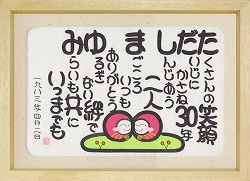 たくさんの笑顔
だいじに
かさね30年
しんじあう
二人
まごころ
いつも
ありがとう
ゆるぎ
ない絆で
みらいも共に
いつまでも
一九八三年四月二日